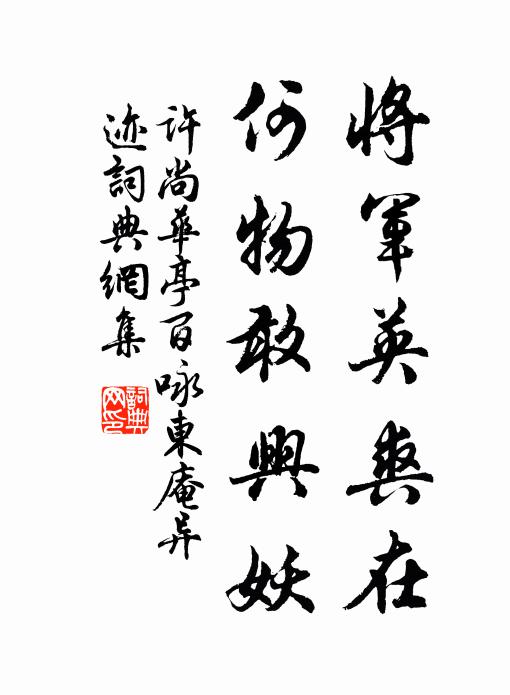 將軍英爽在
何物敢興妖
許尚華亭百咏東庵异
迹詞典網集
詞典网印